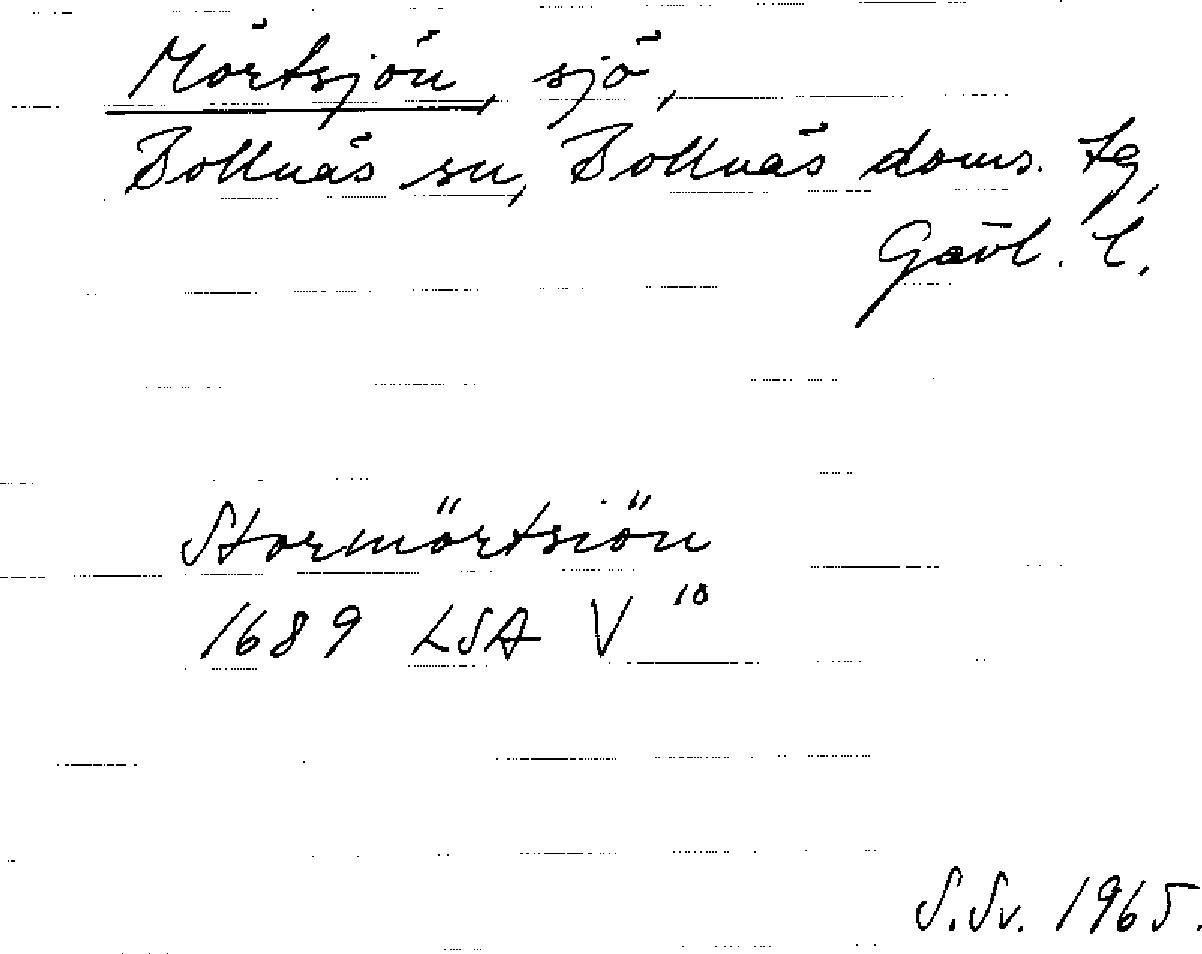 Mörtsjön, sjö,
Bollnäs sn, Bollnäs doms. tg,
Gävl. l.
Stormörtsiön
1689 LSA V 10
S.Sv. 1965.